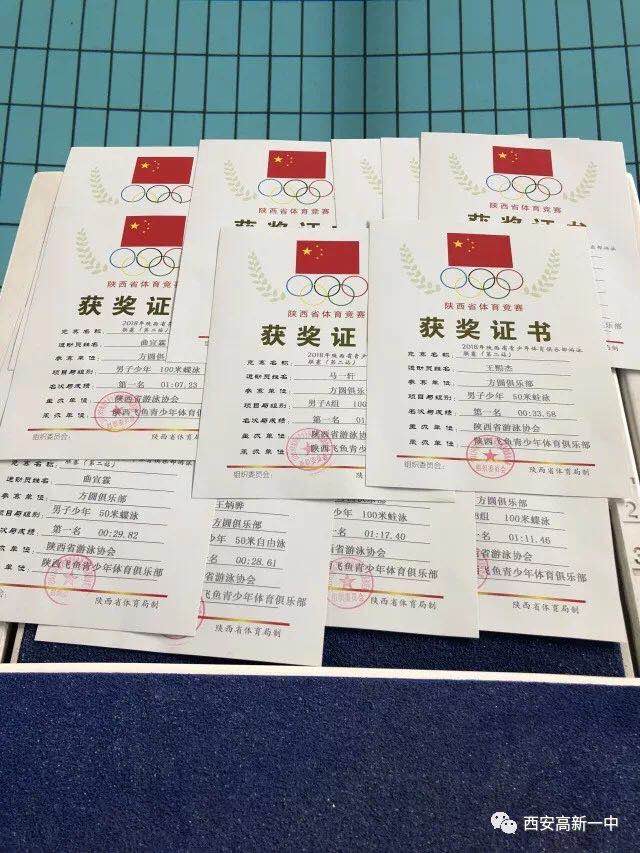 陕西省体育竞赛
获奖证书
竞赛名称: 2018年陕西省青
联赛(第二站)
运动员姓名 曲宣霖
参赛单位: 方圆俱乐部
项目与组别: 男子少年 100米蝶泳
名次与成绩: 第一名 01:07.23
主办单位: 陕西省游泳协会
承办单位: 陕西飞鱼青少年体育俱乐部
组织委员会: 陕西省体育局制
陕西省体育竞赛
获奖证书
竞赛名称: 2018年陕西省青少
联赛(第二站)
运动员姓名 马一轩
参赛单位: 方圆俱乐部
项目与组别: 男子A组 100米蛙泳
名次与成绩: 第一名 01
主办单位: 陕西省游泳协会
承办单位: 陕西飞鱼青少年体
组织委员会: 陕西
陕西省体育竞赛
获奖证书
竞赛名称: 2018年陕西省青少年体育俱乐部游泳
联赛(第二站)
运动员姓名 王熙杰
参赛单位: 方圆俱乐部
项目与组别: 男子少年 50米蛙泳
名次与成绩: 第一名 00:33.58
主办单位: 陕西省游泳协会
承办单位: 陕西飞鱼青少年体育俱乐部
组织委员会: 陕西省体育局制
陕西省体育竞赛
陕西省体育竞赛
获奖证书
竞赛名称: 联赛(第二站)
运动员姓名 曲宣霖
参赛单位: 方圆俱乐部
项目与组别: 男子少年 50米蝶泳
名次与成绩: 第一名 00:29.82
主办单位: 陕西省游泳协会
承办单位: 陕西飞鱼青少年体育俱乐部
陕西省体育局制
方圆俱乐部
少年 50米自由泳
名 00:28.61
陕西省游泳协会
陕西飞鱼青少年体育俱乐部
陕西省体育局制
方圆俱乐部
少年 100米蛙泳
名 01:17.40
陕西省游泳协会
陕西飞鱼青少年体育俱乐部
陕西省体育局制
方圆俱乐部
组 100米蝶泳
名 01:11.46
省游泳协会
飞鱼青少年体育俱乐部
陕西省体育局制
西安高新一中